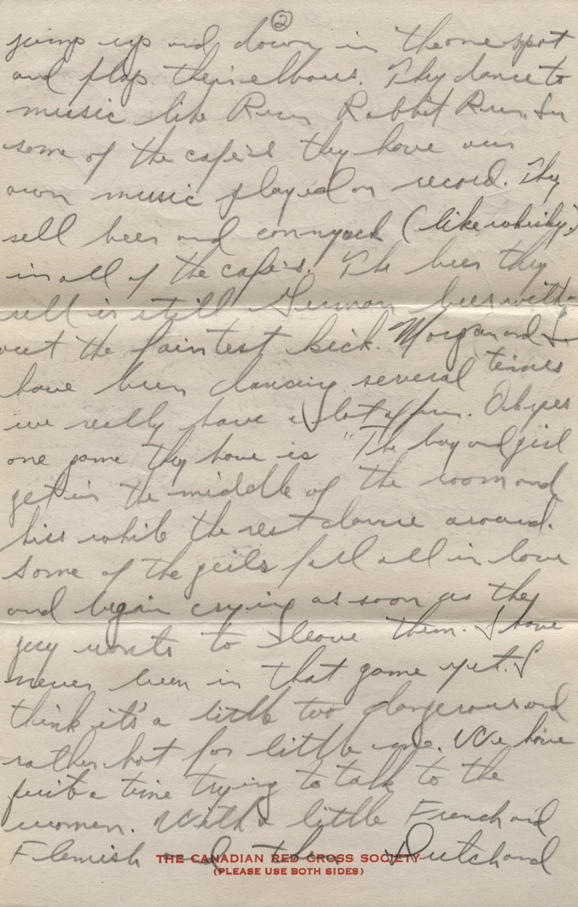 ②
jump up and down in the one spot
and flap their elbows. They dance to
music like Run Rabbit Run. In
some of the café's they have our
own music played on record. They
sell beer and connyack (like whisky)
in all of the café's. The beer they
sell is still German beer with-
out the faintest kick. Morgan and I
have been dancing several times
we really have a lot of fun. Oh yes
one game they have is "The boy and girl
get in the middle of the room and
kiss while the rest dance around.
Some of the girls fall all in love
and begin crying as soon as they
guy wants to leave them. I have
never been in that game yet. I
think it's a little too dangerous and
rather hot for little me. We have
quite a time trying to talk to the
women. With a little French and
Flemish and then Dutch and
THE CANADIAN RED CROSS SOCIETY
(PLEASE USE BOTH SIDES)